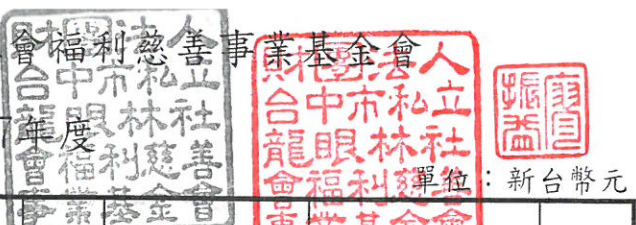 會福利慈善事業基金會
年度
單位：新台幣元
財團法人
台中市私立
龍眼林社
會福利慈善
事業基金會
財團法人
台中市私立
龍眼林社
會福利慈善
事業基金會
振益